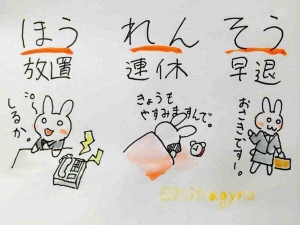 ほう れん そう
放置 連休 早退
しるか。
きょうも
やすみますんで。
おさきでーす。